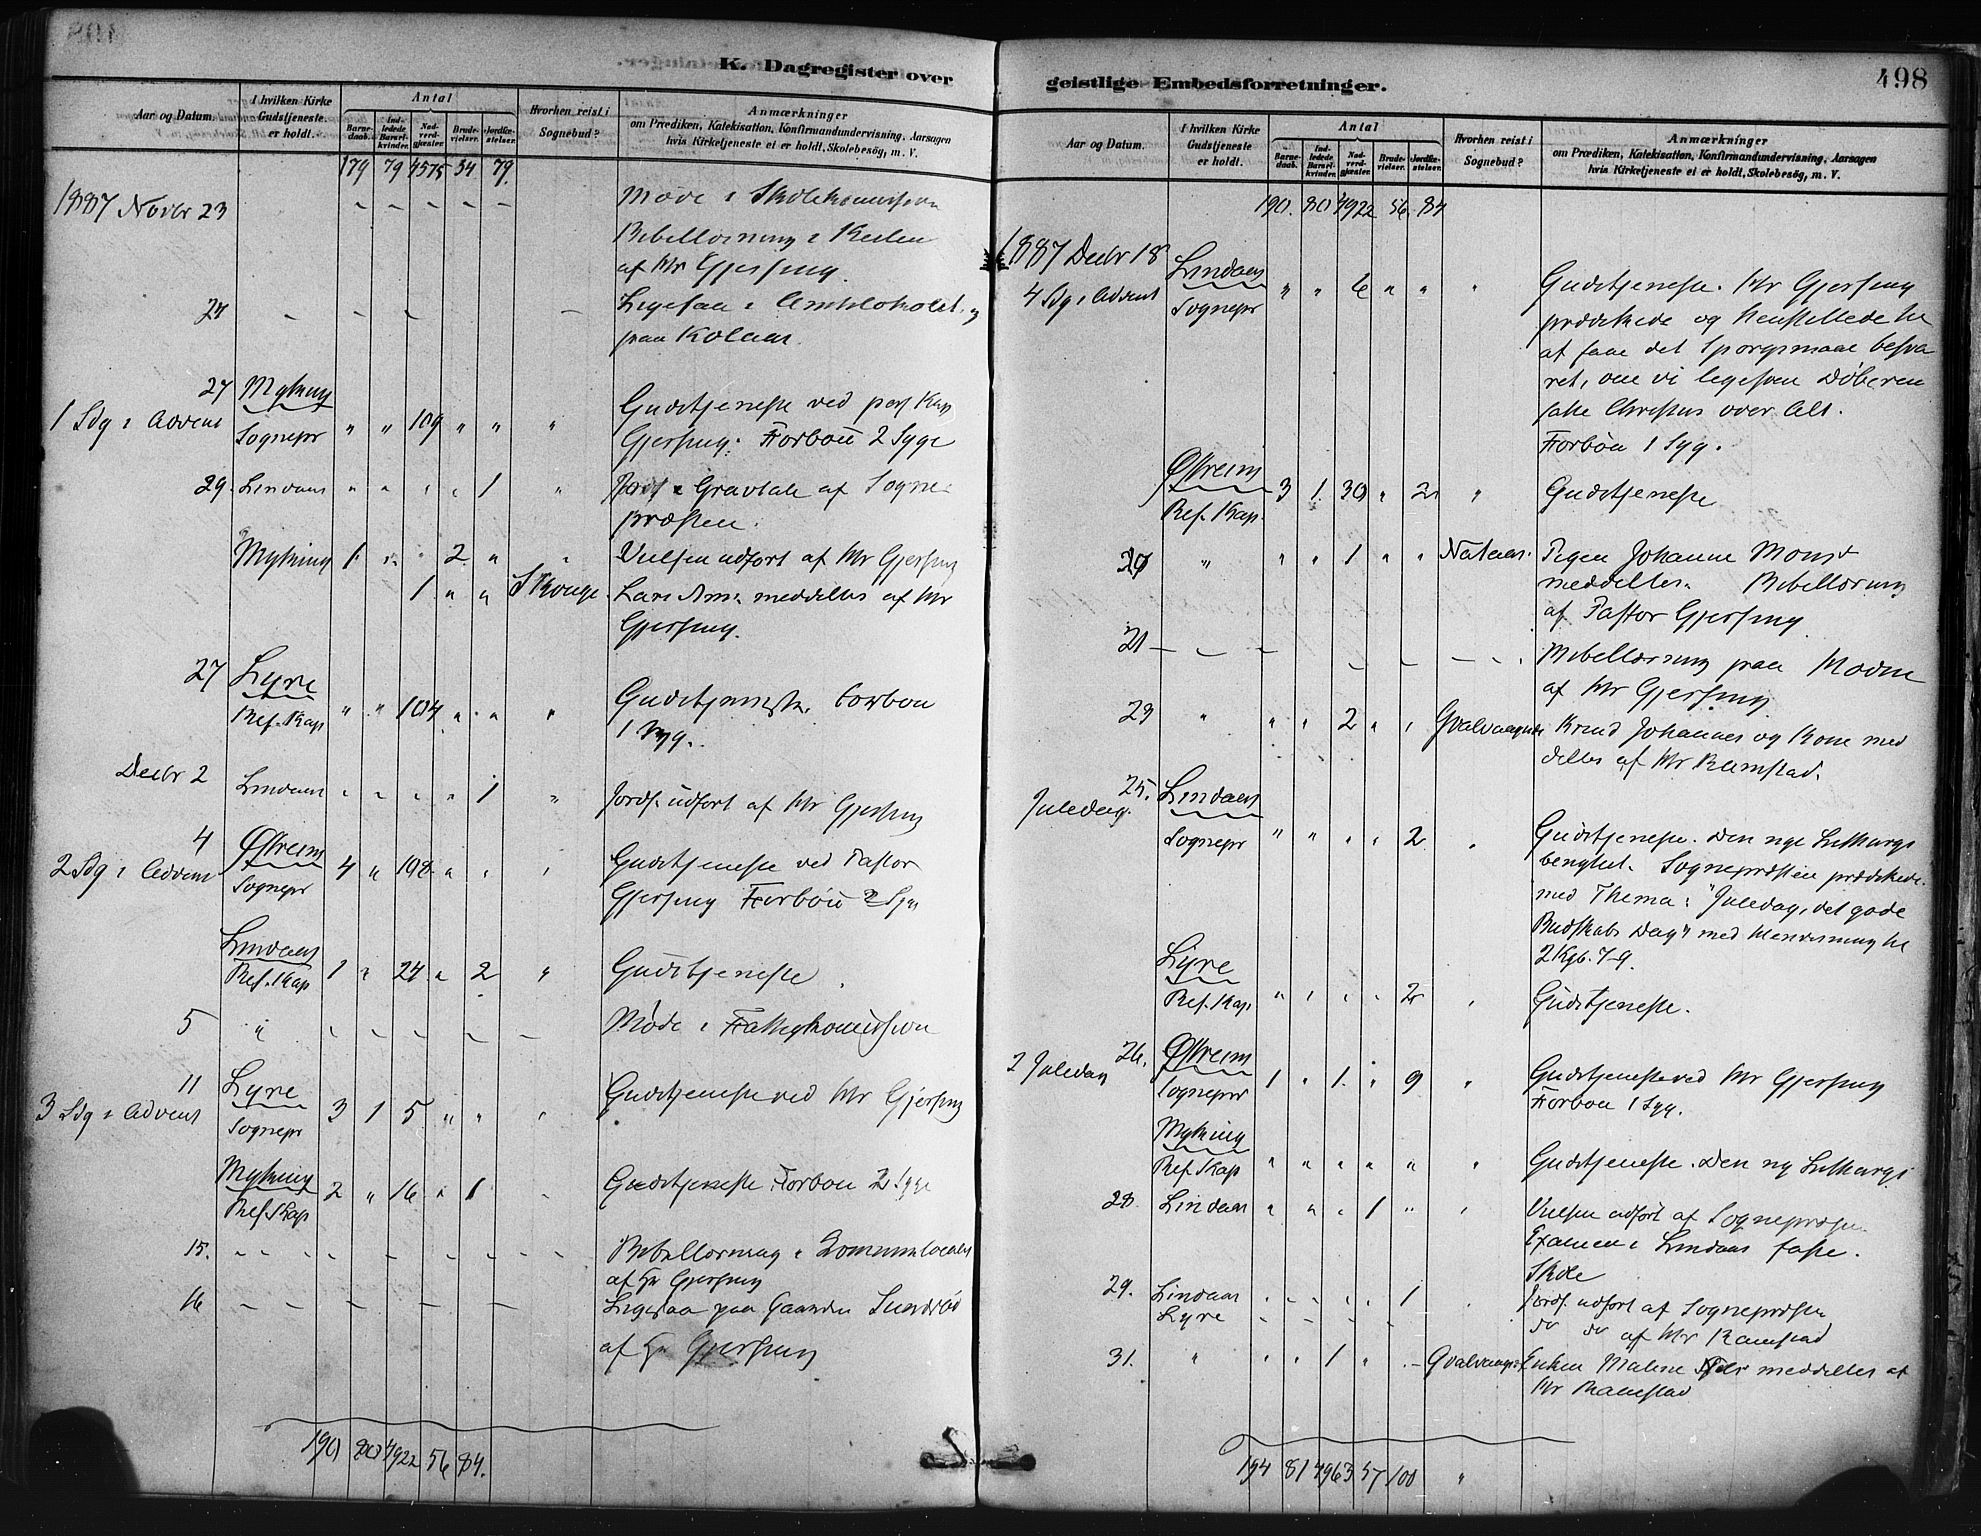 K. Dagregister over
Aar og Datum.
I hvilken Kirke Gudstjeneste. er holdt.
Antal
Barne-daab.
Ind-ledede Barsel-kvinder.
Nad-verd-gjæster.
Brude-vielser.
Jordfæ-stelser.
Hvorhen reist i Sognebud?
Anmærkninger
om Prædiken, Katekisation, Konfirmandundervisning, Aarsagen
hvis Kirketjeneste ei er holdt, Skolebesög, m. V.
179 79 4575 34 79.
1887 Novbr 23 Møde i Skolekommissionen
Bibellæsning i
af Hr Gjersing.
24 Ligesaa i og
paa Kolaas.
27 Myking
1 Sdg i Advent Sognepr " " 109 " " " Gudstjeneste ved pers Kap
Gjersing. Forbön 2 Syge
29. Lindaas 1 " Jordf Gravtale af Sogne-
præsten.
Myking 1 2 " Vielsen udfört af Hr Gjersing
1 " " Skouge. Lars meddeltes af Hr
Gjersing.
27 Lyre
Res. Kap " " 104 " " " Gudstjeneste. Forbön
1 Syg.
Decbr 2 Lindaas 1 " Jordf. udfört af Hr Gjersing
4 Østreim
2 Sdg i Advent Sognepr 4 " 198 " Gudstjeneste ved Pastor
Gjersing Forbön 2 Syge
Lindaas
Res. Kap 1 " 24 " 2 " Gudstjeneste.
5 " Møde i Fattigkommission
11 Lyre
3 Sdg i Advent Sognepr 3 1 5 " " Gudstjeneste ved Hr Gjersing
Myking
Res. Kap 2 " 16 " 1 Gudstjeneste Forbön 2 Syge
15. Bibellæsning i
af Hr Gjersing
16 Ligesaa paa Gaarden
af Hr Gjersing
190 80 4922 56 84.
geistlige Embedsforretninger.
498
Aar og Datum.
I hvilken Kirke Gudstjeneste er holdt.
Antal
Barne-daab.
Ind-ledede Barsel-kvinder.
Nad-verd-gjæster.
Brude-vielser.
Jordfæ-stelser.
Hvorhen reist i Sognebud?
Anmærkninger
om Prædiken, Katekisation, Konfirmandundervisning, Aarsagen
hvis Kirketjeneste ei er holdt, Skolebesög, m. V.
190. 80 4922 56. 84
1887 Decbr 18 Lindaas
4 Sdg i Advent Sognepr " " 6 " " " Gudstjeneste. Hr Gjersing
prædikede og henstillede til
at faae det Spörgsmaal besva
ret, om vi ligesom Döberen
satte Christus over Alt.
Forbön 1 Syg.
Østreim
Res. Kap. 3 1 30 " 2 " Gudstjeneste
20 " " " 1 " " Nataas. Pigen Johanne Mons
meddeltes. Bibellæsning
af Pastor Gjersing
21 Bibellæsning paa
af Hr Gjersing.
23 " " " 2 " " Knud Johannes og Kone med
deltes af Hr Ramstad.
25. Lindaas
Juledag. Sognepr " " 2 Gudstjeneste. Den nye Lithurgi
benyttet. Sognepræsten prædikede
med Thema: "Juledag, det gode
Budskabs Dag" med Henvisning til
2 Kgb. 7-9.
Lyre
Res. Kap. 2 Gudstjeneste.
26. Østreim
2 Juledag Sognepr 1 " 1. " 9 " Gudstjeneste ved Hr Gjersing
Forbön 1 Syg.
Myking
Res. Kap " " " " " " Gudstjeneste. Den ny Lithurgi
28. Lindaas " " " 1 " Vielsen udfört af Sognepræsten
Examen i Lindaas faste
Skole
29. Lindaas 1 Jordf. udfört af Sognepræsten
Lyre do do af Hr Ramstad
31. " 1 " Enken Malene meddeltes af
Hr Ramstad
194 81 4963 57 100 "